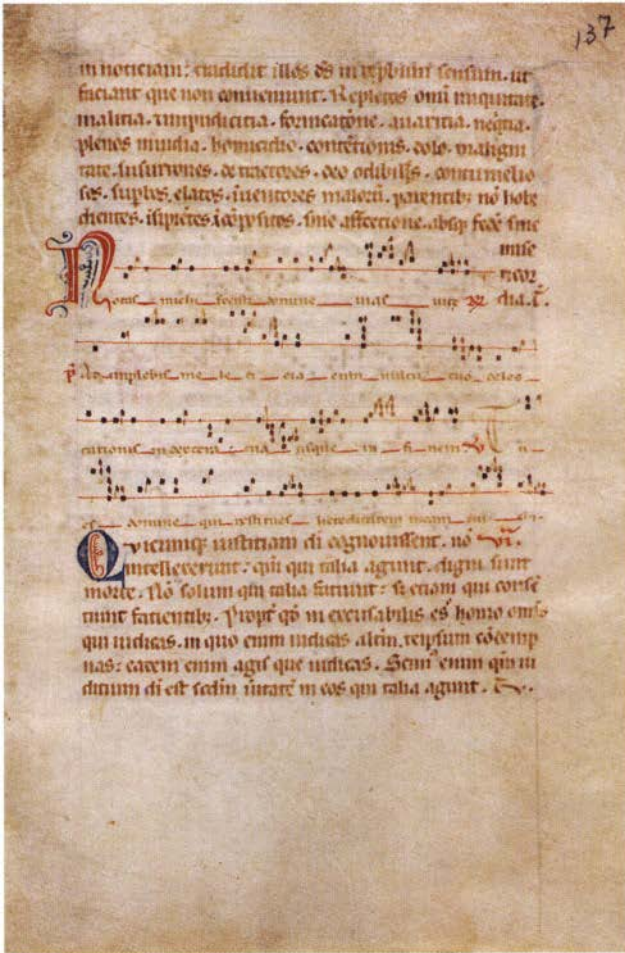 137
in noticiam: tradidit illos ds in repbum sensum. ut
faciant que non conueniunt. Repletos omi iniquitate.
malitia. inpudicitia. fornicatone. auaritia. neqtia.
plenos inuidia. homicidio. contetionis. dolo. maligni
tate. susurrones. detractores. deo odibiles. contumelio
sos. suplos. elatos. iuentores malorum. parentib; no hobe
dientes. isipietes icopositos. sine affectione. absq; fede sine
mise
ricor
dia. 
Notas michi fecisti domine uias uite
Ad implebis me le ti cia cum uultu tuo delec
tationis in dextera tua usque in finem
es domine qui restitues hereditatem meam
Quicumq; iustitiam di cognouissent. no
intellexerunt: qm qui talia agunt. digni sunt
morte. No solum qui talia faciunt: s; etiam qui conse
tiunt facientib;. Propt qd in excusabilis es homo omis
qui iudicas. in quo enim iudicas altm. teipsum cotemp
nas: eadem enim agis que iudicas. Scim enim qm iu
ditium di est scdm uitate in eos qui talia agunt.